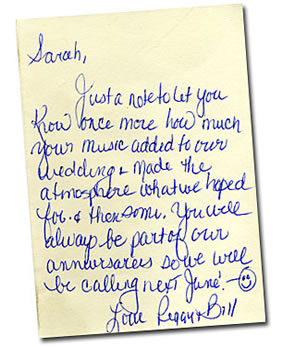 Sarah,
Just a note to let you
Know once more how much
your music added to our
wedding & made the
atmosphere what we hoped
for & then some. You will
always be part of our
anniversaries so we will
be calling next June! —
Love Peggy & Bill